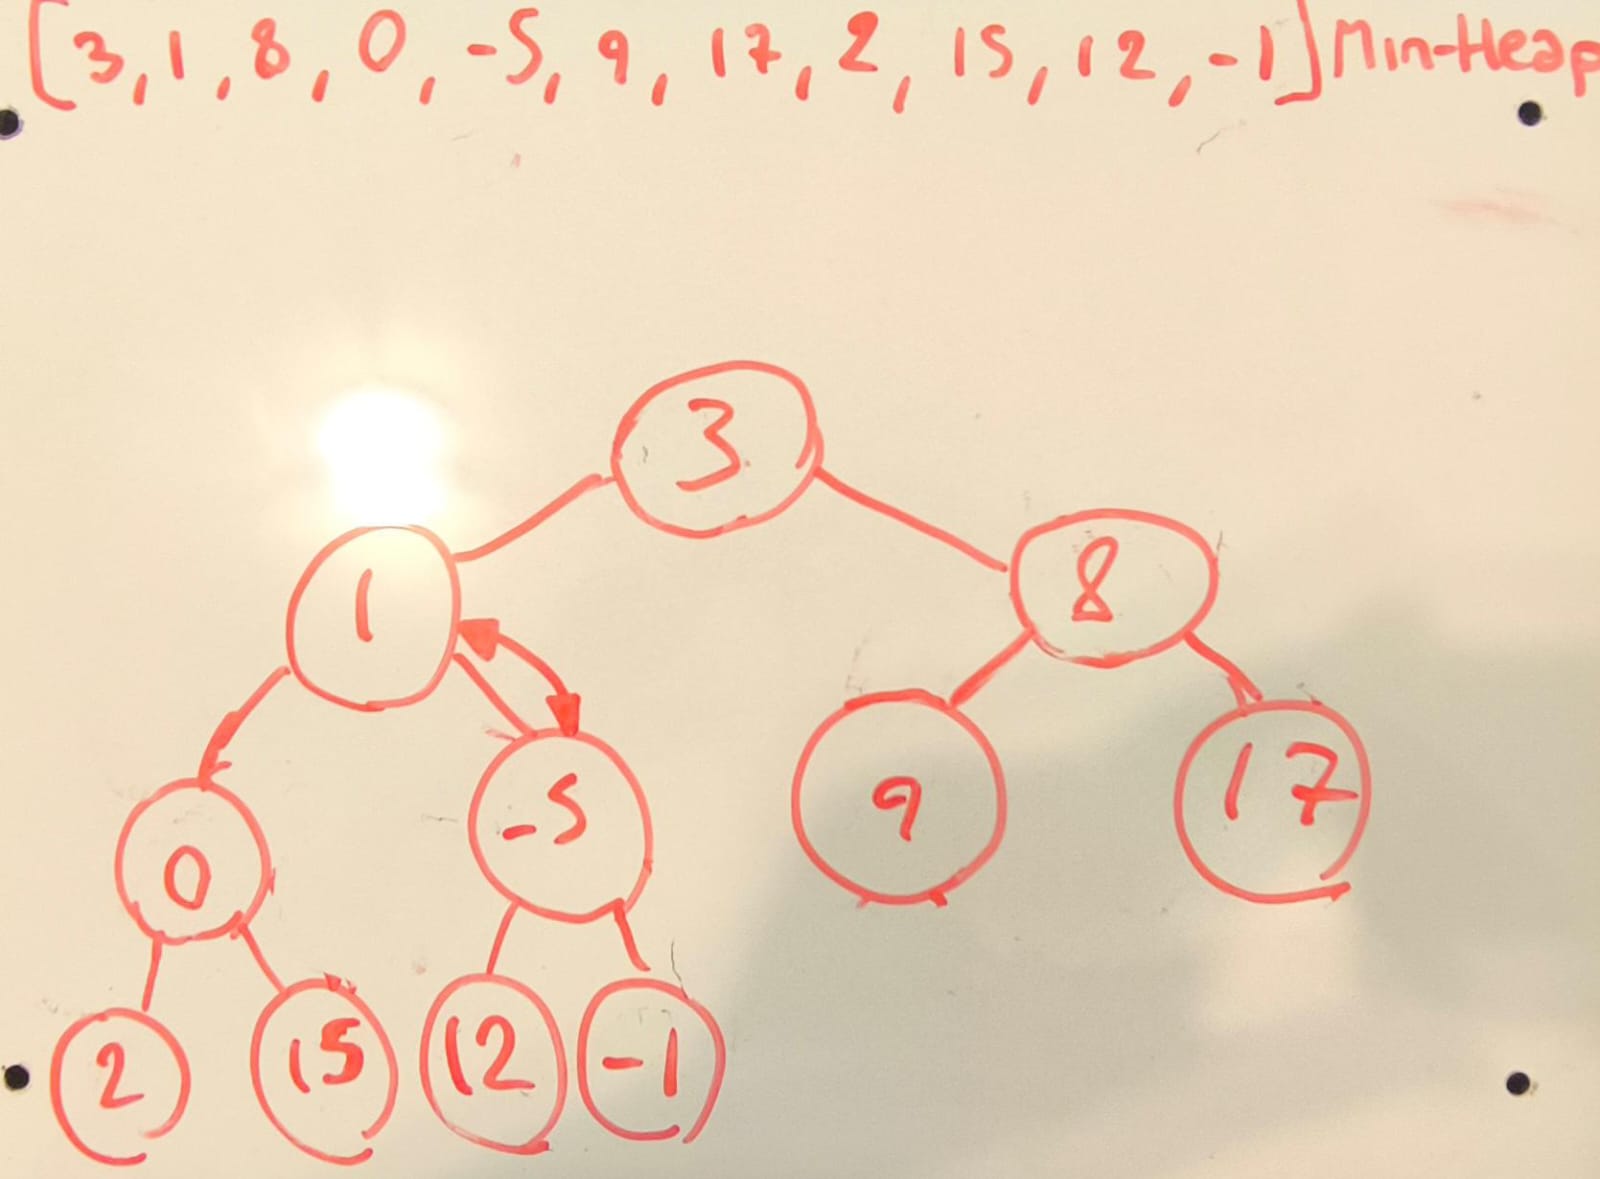 [3, 1, 8, 0, -5, 9, 17, 2, 15, 12, -1] Min-Heap
3
1 8
0 -5 9 17
2 15 12 -1